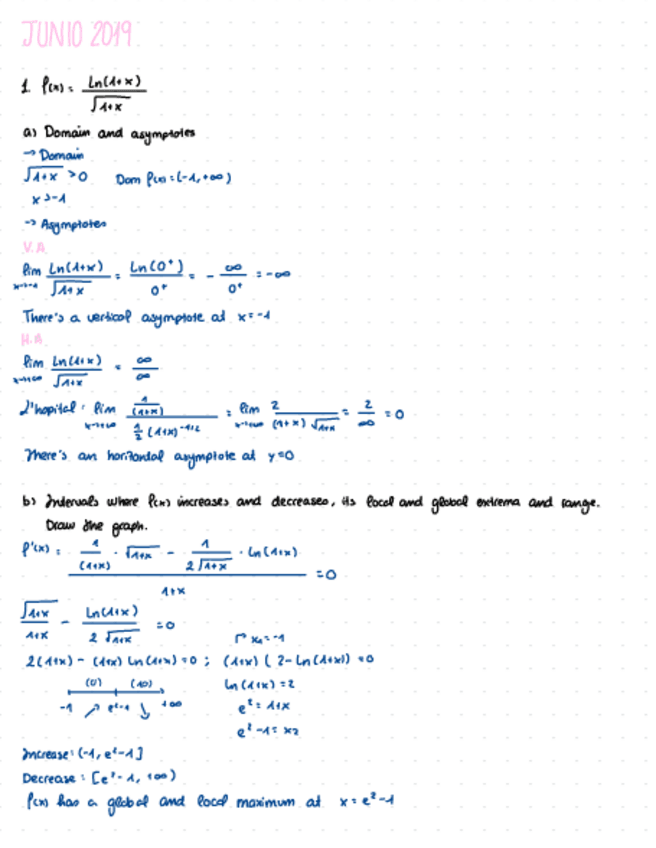 JUNIO 2019
1. f(x) = Ln(1+x) / √1+x
a) Domain and asymptotes
→ Domain
√1+x > 0 Dom f(x) = (-1, +∞)
x > -1
→ Asymptotes
V.A
lim x→-1 Ln(1+x) / √1+x = Ln(0⁺) / 0⁺ = - ∞ / 0⁺ = -∞
There's a vertical asymptote at x = -1
H.A
lim x→+∞ Ln(1+x) / √1+x = ∞ / ∞
L'hopital: lim x→+∞ (1 / (1+x)) / (1/2 (1+x)^-1/2) = lim x→+∞ 2 / (1+x) √1+x = 2 / ∞ = 0
There's an horizontal asymptote at y=0
b) Intervals where f(x) increases and decreases, its local and global extrema and range.
Draw the graph.
f'(x) = (1 / (1+x) · √1+x - 1 / 2√1+x · Ln(1+x)) / 1+x = 0
√1+x / 1+x - Ln(1+x) / 2√1+x = 0
→ x₁ = -1
2(1+x) - (1+x) Ln(1+x) = 0 ; (1+x) (2 - Ln(1+x)) = 0
(0) (10) Ln(1+x) = 2
-1 ↗ e²-1 ↘ +∞ e² = 1+x
e² - 1 = x₂
Increase: (-1, e²-1]
Decrease: [e²-1, +∞)
f(x) has a global and local maximum at x = e²-1